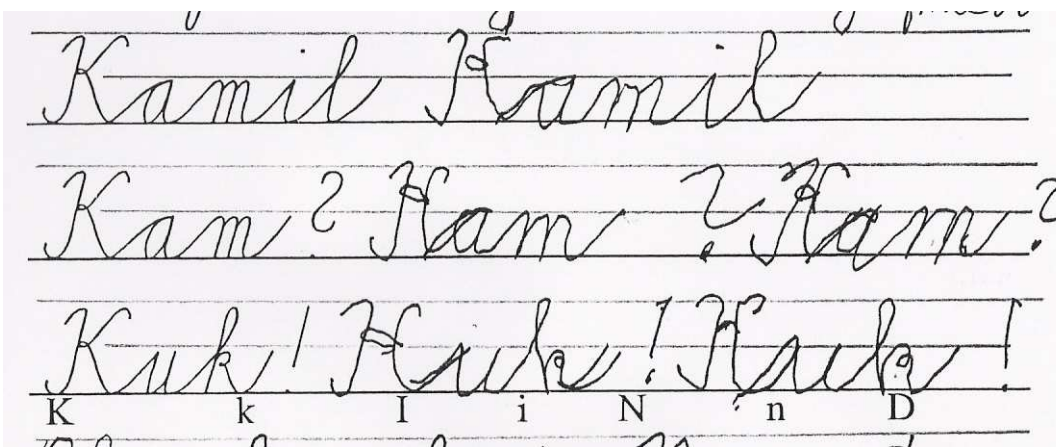 Kamil Kamil
Kam? Kam ? Kam?
Kuk! Kuk! Kuk!
K k I i N n D